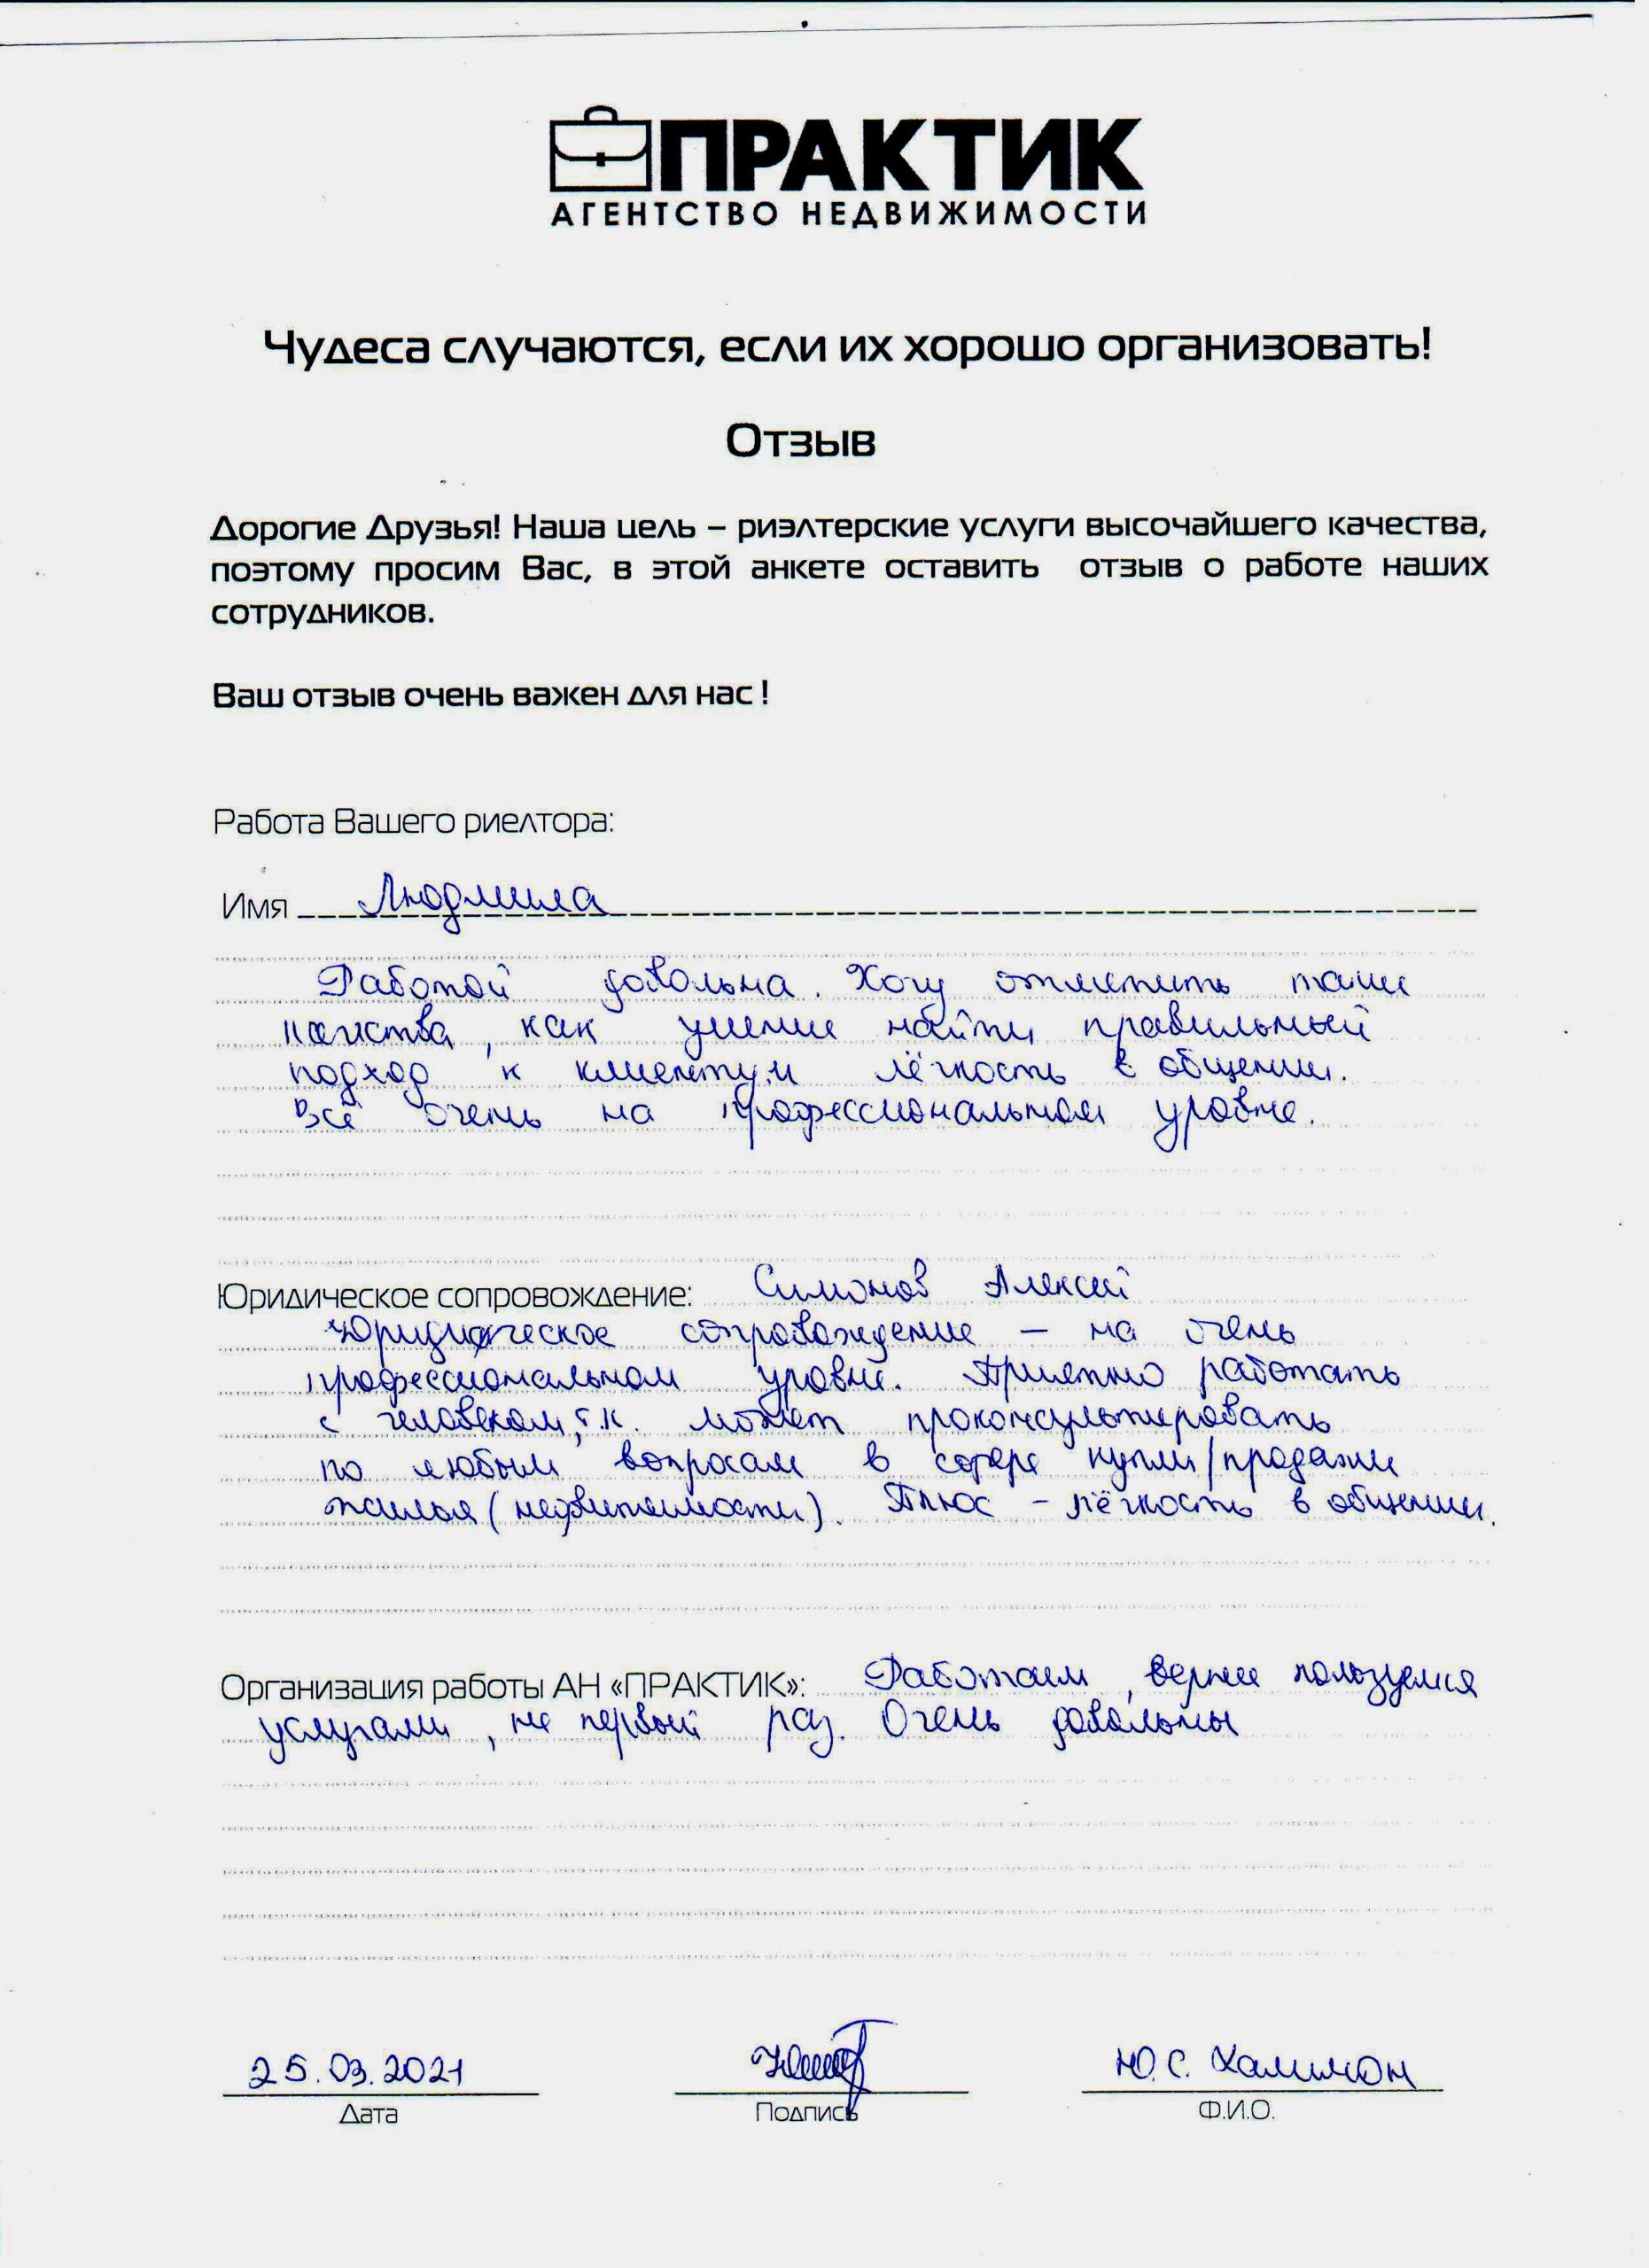 ПРАКТИК
АГЕНТСТВО НЕДВИЖИМОСТИ
Чудеса случаются, если их хорошо организовать!
Отзыв
Дорогие Друзья! Наша цель – риэлтерские услуги высочайшего качества,
поэтому просим Вас, в этой анкете оставить отзыв о работе наших
сотрудников.
Ваш отзыв очень важен для нас !
Работа Вашего риелтора:
Имя Людмила
Работой довольна. Хочу отметить такие
качества, как умение найти правильный
подход к клиенту и лёгкость в общении.
Всё очень на профессиональном уровне.
Юридическое сопровождение: Симонов Алексей
Юридическое сопровождение – на очень
профессиональном уровне. Приятно работать
с человеком, т.к. может проконсультировать
по любым вопросам в сфере купли/продажи
жилья (недвижимости). Плюс – лёгкость в общении.
Организация работы АН «ПРАКТИК»: Работаем, вернее пользуемся
услугами, не первый раз. Очень довольны
25.03.2021 Ю.С. Халимон
Дата Подпись Ф.И.О.